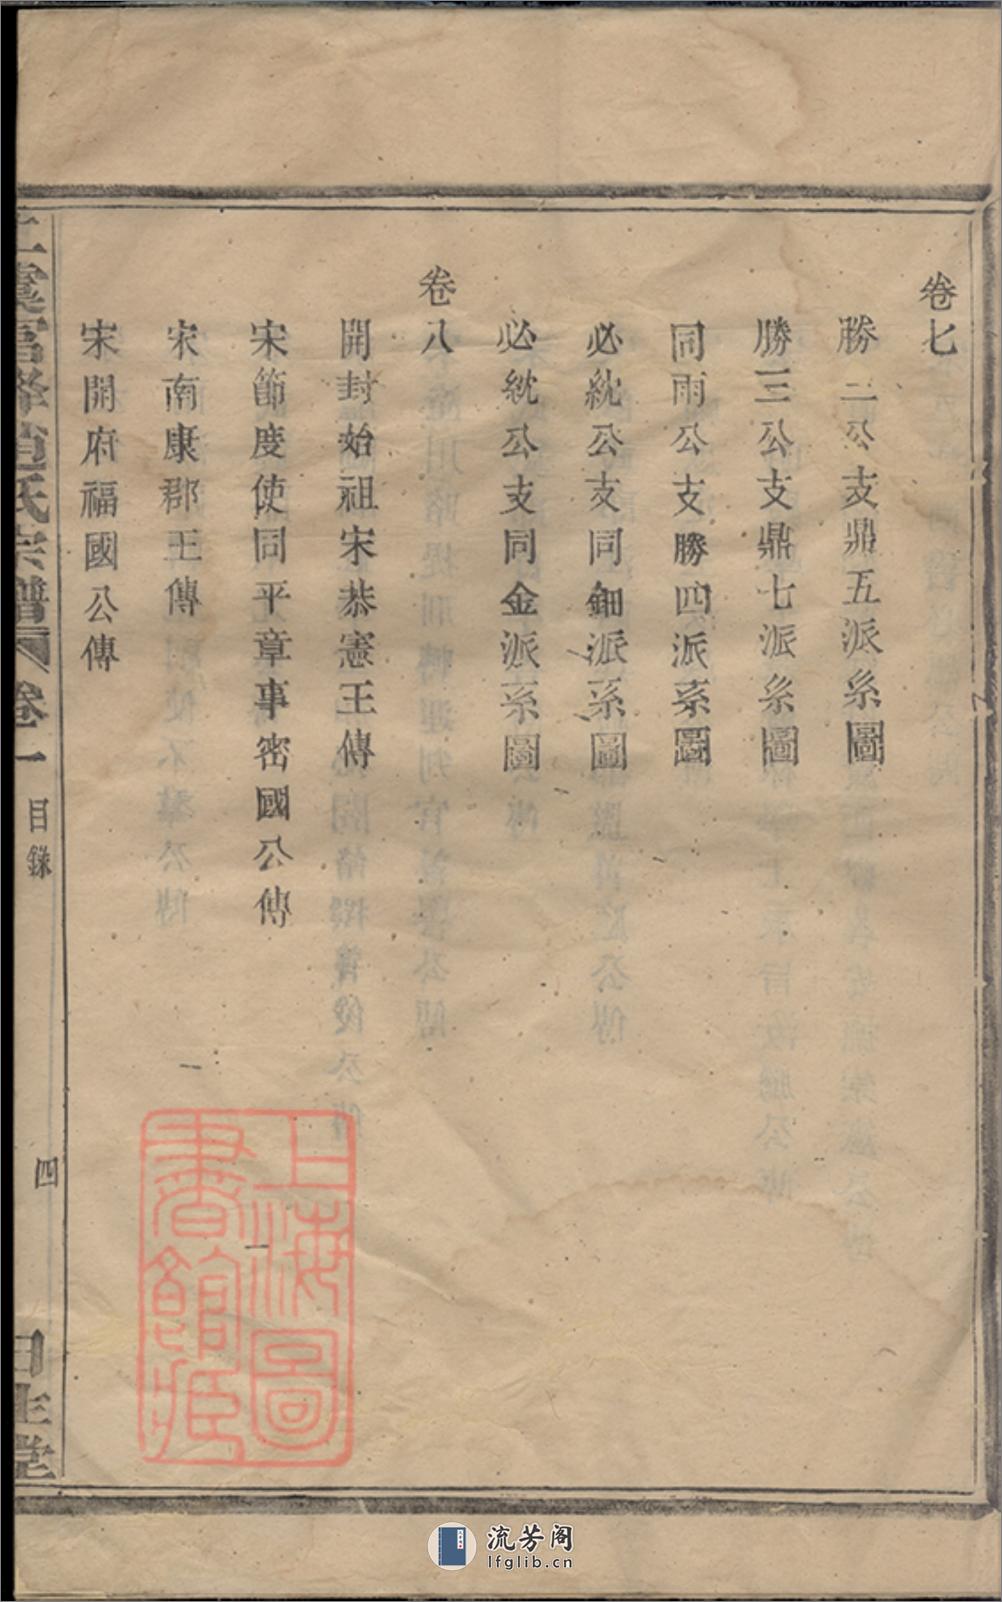 卷七
勝二公支鼎五派系圖
勝三公支鼎七派系圖
同雨公支勝四派系圖
必紞公支同鈿派系圖
必紞公支同金派系圖
卷八
開封始祖宋恭憲王傳
宋節度使同平章事密國公傳
宋南康郡王傳
宋開府福國公傳
上虞富峰趙氏宗譜 卷一 目錄 四 日生堂
上海圖書館藏
流芳阁
lfglib.cn